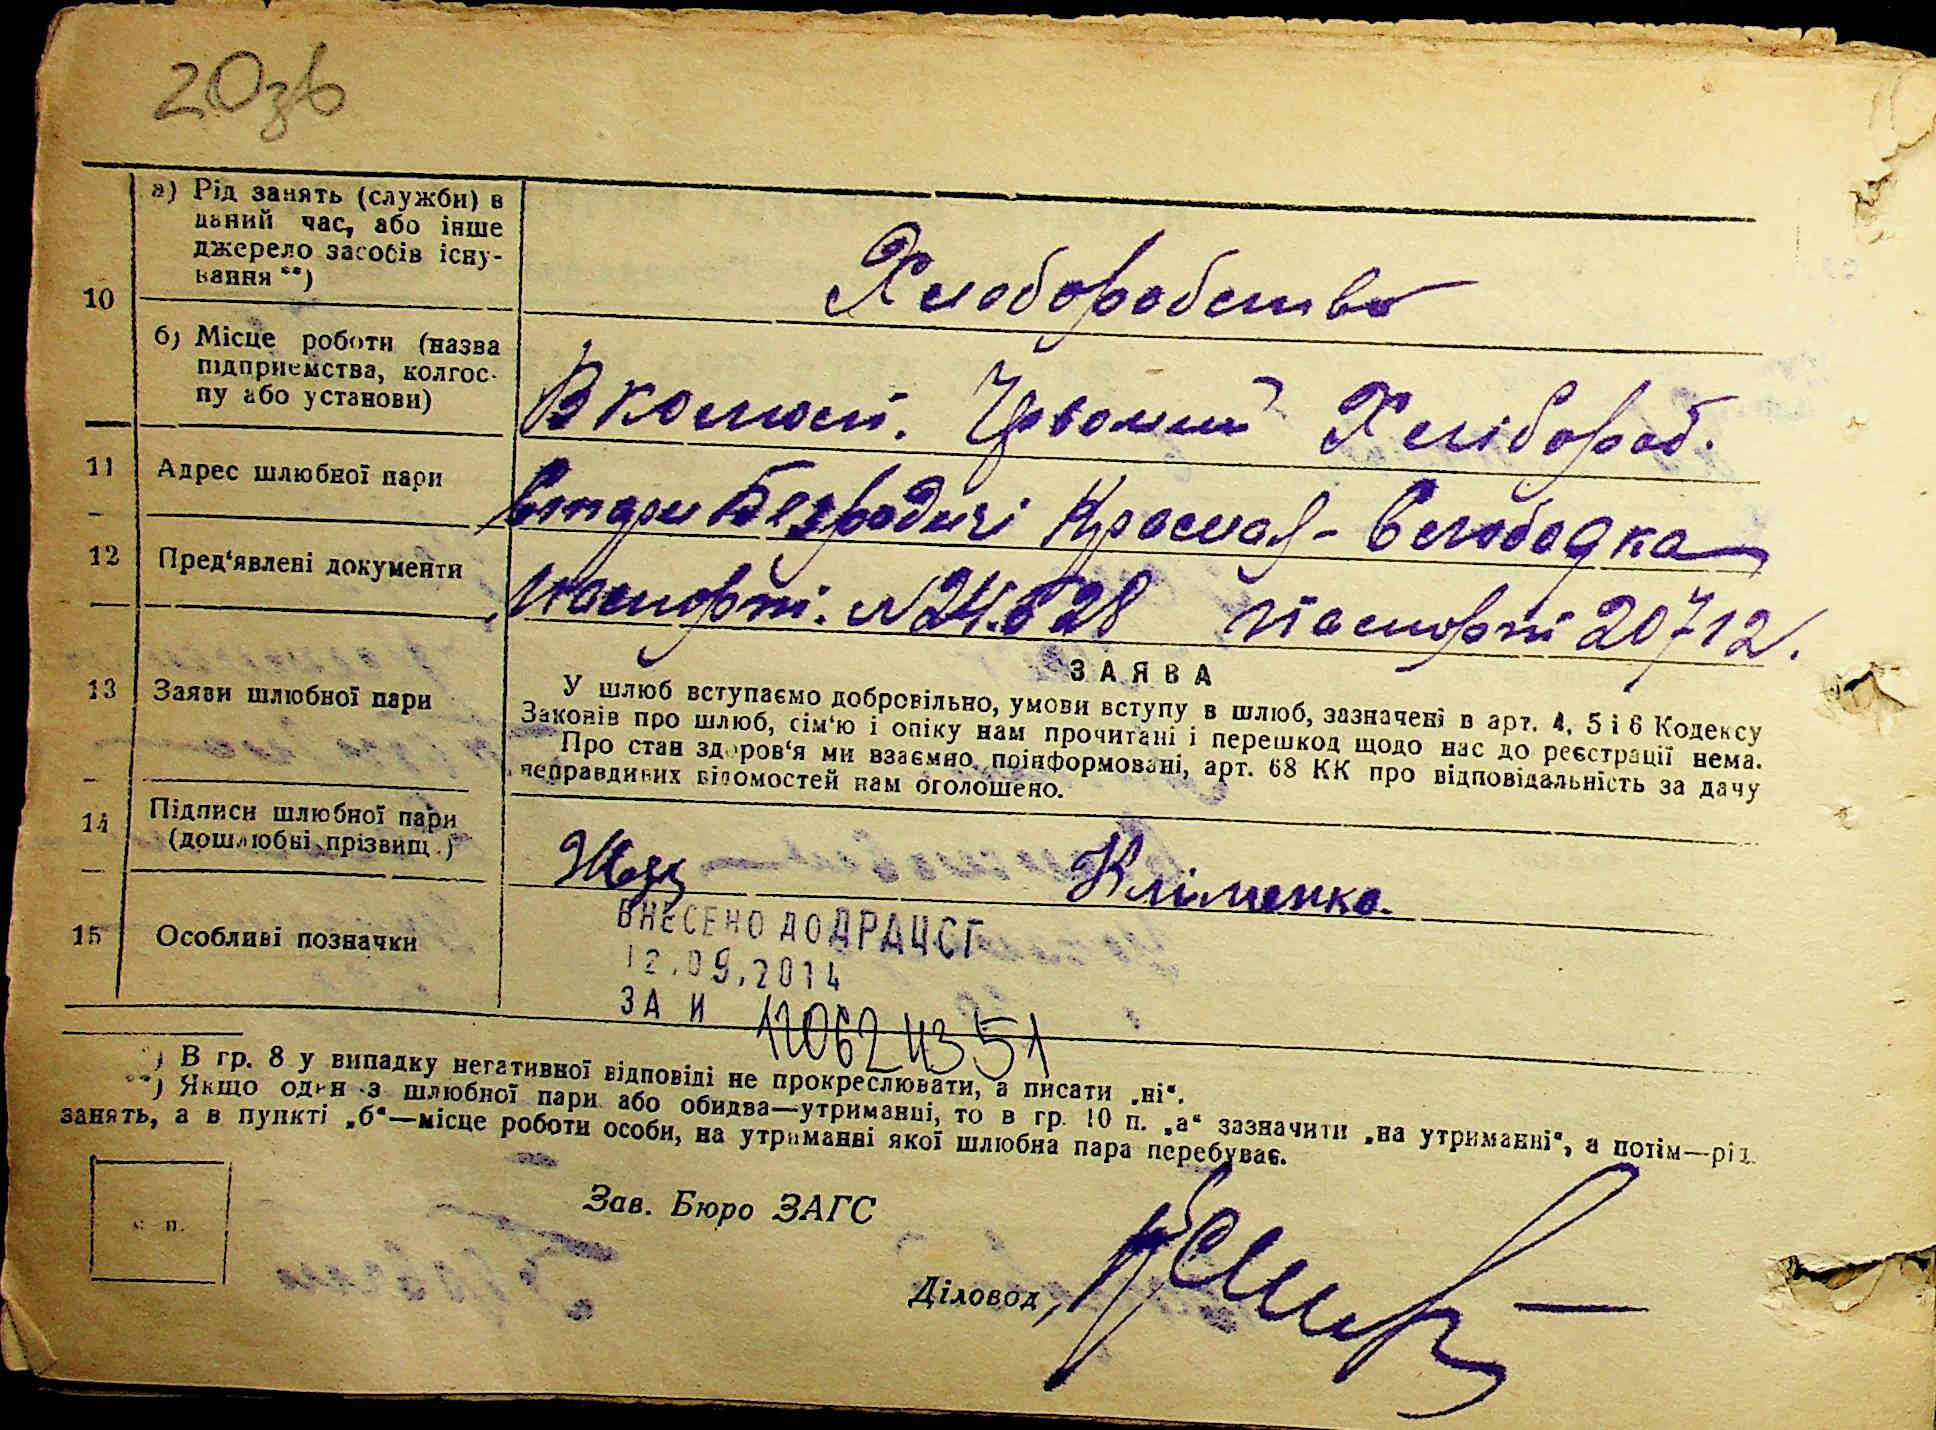 20зв
а) Рід занять (служби) в
даний час, або інше
джерело засобів існу-
вання **)
10
Хлоборобство
б) Місце роботи (назва
підприємства, колгос-
пу або установи)
В колгосп. Червоний Хлібороб.
11 Адрес шлюбної пари
Стари Безрадичі Красная-Слободка
12 Пред'явлені документи
Паспорт. № 24.628 Паспорт 20712.
13 Заяви шлюбної пари
ЗАЯВА
У шлюб вступаємо добровільно, умови вступу в шлюб, зазначені в арт. 4, 5 і 6 Кодексу
Законів про шлюб, сім'ю і опіку нам прочитані і перешкод щодо нас до реєстрації нема.
Про стан здоров'я ми взаємно поінформовані, арт. 68 КК про відповідальність за дачу
неправдивих відомостей нам оголошено.
14 Підписи шлюбної пари
(дошлюбні прізвищ.)
Кліменко.
15 Особливі позначки
ВНЕСЕНО ДО ДРАЦСГ
12.09.2014
ЗА И 1206243 51
*) В гр. 8 у випадку негативної відповіді не прокреслювати, а писати „ні“.
**) Якщо один з шлюбної пари або обидва—утриманці, то в гр. 10 п. „а“ зазначити „на утриманні“, а потім—рід
занять, а в пункті „б“—місце роботи особи, на утриманні якої шлюбна пара перебуває.
с. п.
Зав. Бюро ЗАГС
Діловод